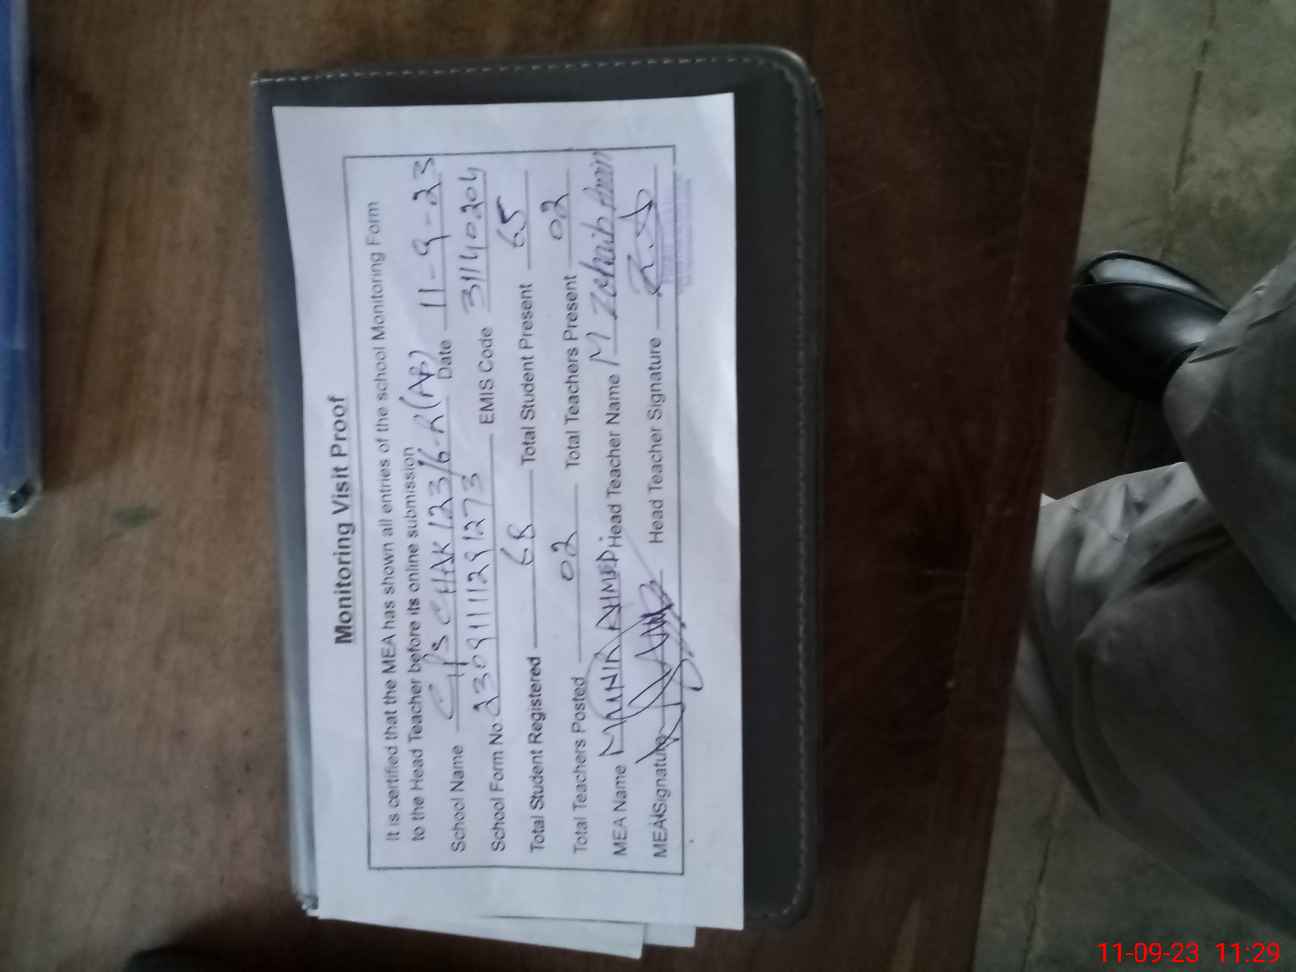 Monitoring Visit Proof
It is certified that the MEA has shown all entries of the school Monitoring Form
to the Head Teacher before its online submission
School Name GPS CHAK 123/6-R (AB) Date 11-9-23
School Form No 2309111291273 EMIS Code 31140204
Total Student Registered 68 Total Student Present 65
Total Teachers Posted 02 Total Teachers Present 02
MEA Name MUNIR AHMED Head Teacher Name M Zohaib Amin
MEA Signature Head Teacher Signature
11-09-23 11:29